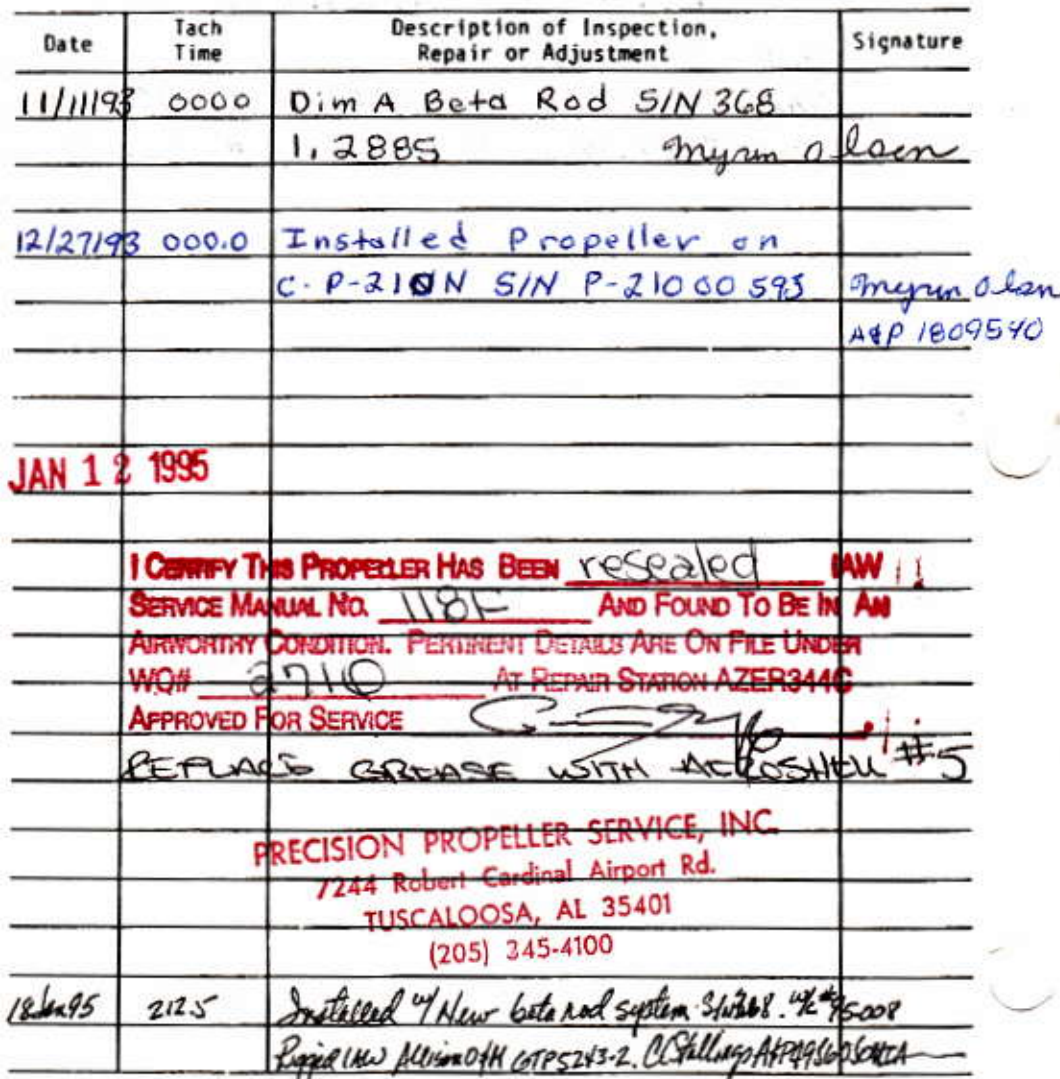 Date Tach Time Description of Inspection, Repair or Adjustment Signature
11/11/93 0000 Dim A Beta Rod S/N 368
1.2885 Myrun Olsen
12/27/93 000.0 Installed Propeller on
C. P-210N S/N P-21000593 Myrun Olsen
A&P 1809540
JAN 12 1995
I CERTIFY THIS PROPELLER HAS BEEN resealed IAW
SERVICE MANUAL NO. 118F AND FOUND TO BE IN AN
AIRWORTHY CONDITION. PERTINENT DETAILS ARE ON FILE UNDER
WO# 2710 AT REPAIR STATION AZER344G
APPROVED FOR SERVICE
REPLACE GREASE WITH AEROSHELL #5
PRECISION PROPELLER SERVICE, INC.
7244 Robert Cardinal Airport Rd.
TUSCALOOSA, AL 35401
(205) 345-4100
18 Jan 95 212.5 Installed w/ New beta rod system. 95008
Rigged IAW Allison O&M GTP5243-2. C Stallings